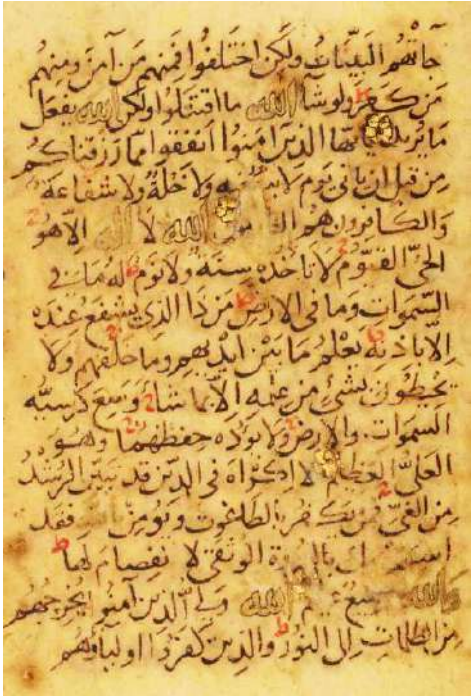 جاتهم البينات ولكن اختلفوا فمنهم من آمن ومنهم
من كفر ولو شا الله ما اقتتلوا ولكن الله يفعل
ما يريد يها الذين امنوا انفقوا مما رزقناكم
من قبل ان ياتى يوم لا بيع فيه ولا خلة ولا شفاعة
والكافرون هم الله لا اله الا هو
الحى القيوم لا تاخذه سنة ولا نوم له ما فى
السموات وما فى الارض من ذا الذى يشفع عنده
الا باذنه يعلم ما بين ايديهم وما خلفهم ولا
يحيطون بشئ من علمه الا بما شا وسع كرسيه
السموات والارض ولا يوده حفظهما وهو
العلى العظيم لا اكراه فى الدين قد تبين الرشد
من الغى فمن يكفر بالطاغوت ويومن فقد
الوثقى لا نفصام لها
والله الله ولى الذين آمنوا يخرجهم
من الظلمات الى النور والذين كفروا اولياوهم